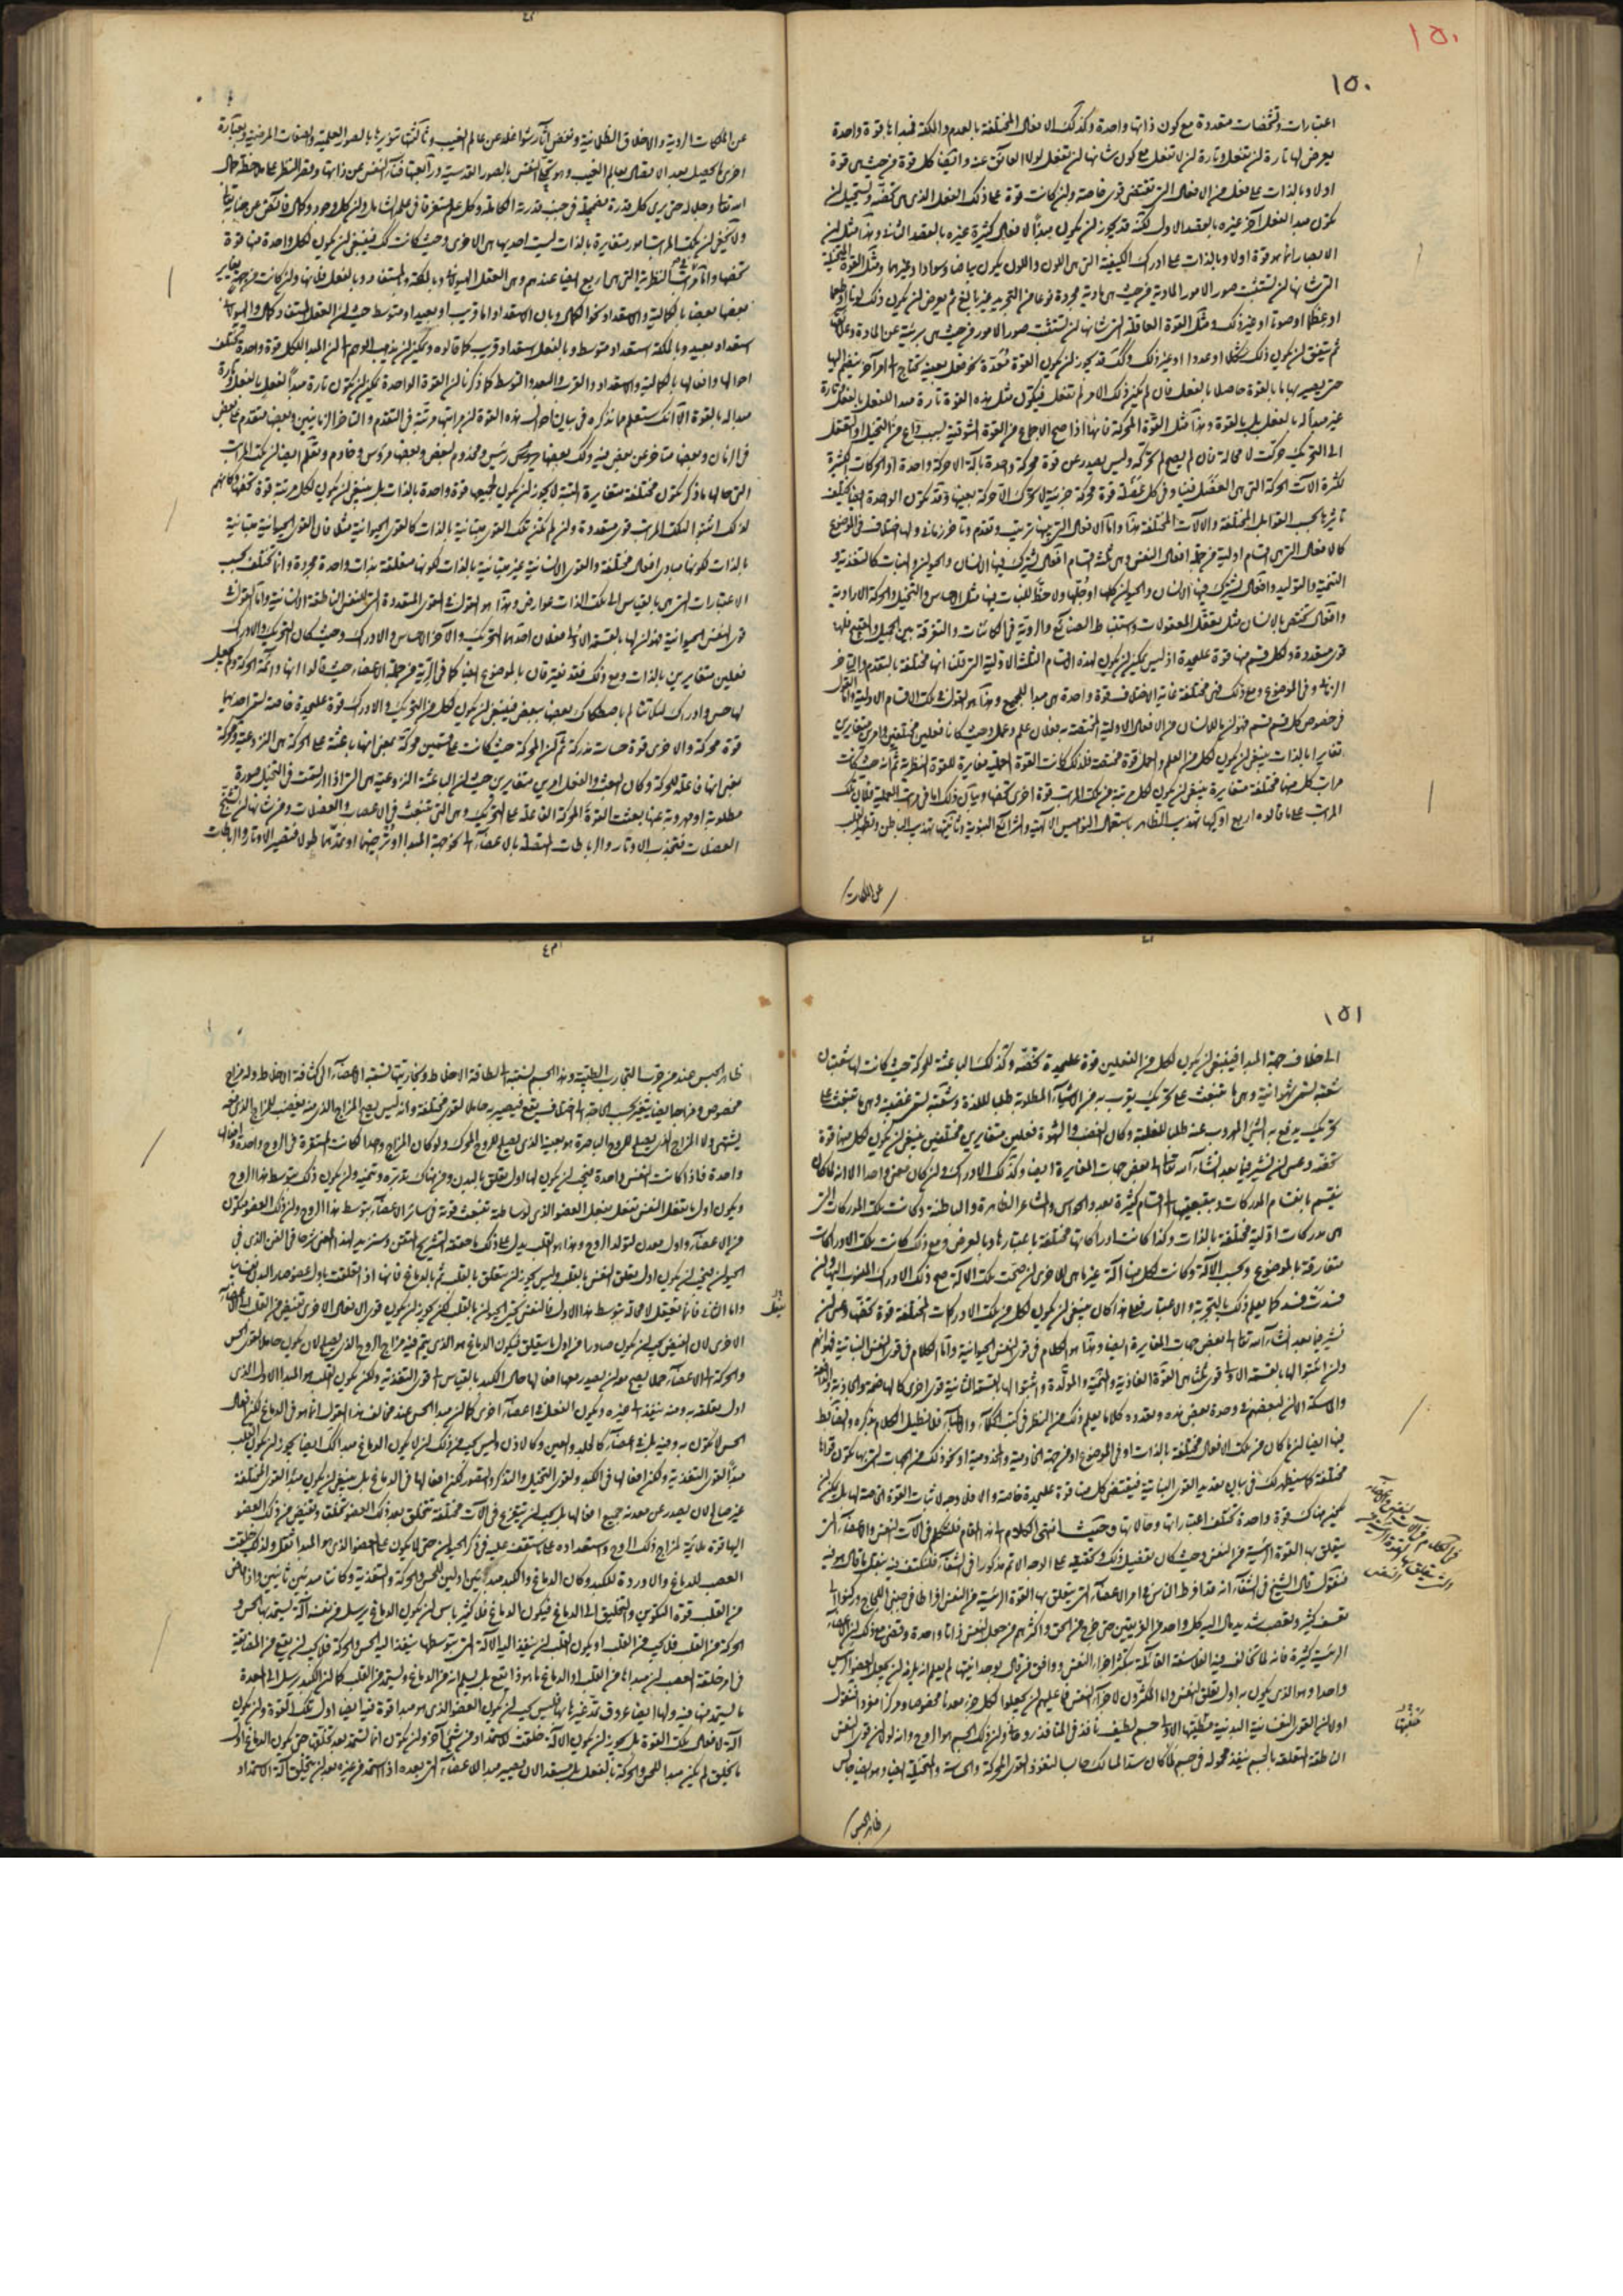 ١٥٠
١٥٠
اعتبارات وتشخصات متعددة مع كون ذاتها واحدة وكذلك الافعال المختلفة بالعدم والملكة فمبداها قوة واحدة
يعرض لها تارة ان تفعل وتارة ان لا تفعل مع كون شانها ان تفعل لولا العائق عنه وايضا كل قوة من حيث هى قوة
اولا وبالذات على فعل من الافعال التى تقتضى قوى خاصة وان كانت قوة على ذلك الفعل الذى هى تخصه ويستحيل ان
يكون مبدا لفعل آخر غيره بالقصد الاول لكنه قد يجوز ان يكون مبدأ لافعال كثيرة غيره بالقصد الثانى وهذا مثل ان
الابصار انما هو قوة اولا وبالذات على ادراك الكيفية التى هى اللون واللون يكون بياضا وسوادا وغيرهما ومثل القوة المتخيلة
التى شانها ان تستثبت صور الامور المادية من حيث هى مادية مجردة نوعا من التجريد غير بالغ ثم يعرض ان يكون ذلك لونا او طعما
او عظما او صوتا او غير ذلك ومثل القوة العاقلة التى شانها ان تستثبت صور الامور من حيث هى بريئة عن المادة وعلائقها
ثم يتفق ان يكون ذلك شكلا او عددا او غير ذلك وكذلك قد يجوز ان يكون القوة معدة نحو فعل بعينه يحتاج الى امر آخر ينضم اليها
حتى يصير بها ما بالقوة حاصلا بالفعل فان لم يكن ذلك الامر لم تفعل فيكون مثل هذه القوة تارة مبدا للفعل بالفعل وتارة
غير مبدأ له بالفعل بل بالقوة وهذا مثل القوة المحركة فانها اذا صح الاجماع من القوة الشوقية بسبب داع من التخيل او التعقل
الى التحريك حركت لا محالة فان لم يصح لم تحركه وليس يصدر عن قوة محركة واحدة بآلة الا حركة واحدة اذ الحركات الكثيرة
لكثرة الآت الحركة التى هى العضل فينا وفى كل عضلة قوة محركة جزئية لا تحرك الا حركة بعينها وقد تكون الواحدة ايضا يختلف
تاثيرها بحسب القوابل المختلفة والالات المختلفة هذا واما الافعال التى بينها ترتيب وتقدم وتاخر زمانى ولها اختلاف فى الموضوع
كالافعال التى هى اقسام اولية من جملة افعال النفس وهى ثلثة اقسام افعال يشترك فيها الانسان والحيوان والنبات كالتغذية و
التنمية والتوليد وافعال يشترك فيها الانسان والحيوان كلها او جلها ولا حظ للنبات فيها مثل الاحساس والتخيل والحركة الارادية
وافعال يختص بالانسان مثل تعقل المعقولات واستنباط الصنايع والروية فى الكائنات والتفرقة بين الجميل والقبيح فلها
قوى متعددة ولكل قسم منها قوة عليحدة اذ ليس يمكن ان يكون لهذه الاقسام الثلثة الاولية التى قلنا انها مختلفة بالتقدم والتاخر
الزمانى وفى الموضوع ومع ذلك فهى مختلفة غاية الاختلاف قوة واحدة هى مبدا للجميع وهذا هو القول فى تلك الاقسام الاولية واما القول
فى خصوص كل قسم قسم فهو ان للانسان من الافعال الاولية المختصة به فعلان علم وعمل وحيث كانا فعلين مختلفين وامرين متغايرين
تغايرا بالذات ينبغى ان يكون لكل من العلم والعمل قوة مختصة فلذلك كانت القوة العملية مغايرة للقوة النظرية ثم انه حيث كانت
مراتب كل منها مختلفة متغايرة ينبغى ان يكون لكل مرتبة من تلك المراتب قوة اخرى تخصها وبيان ذلك اما فى مراتب العملية فلان تلك
المراتب على ما قالوه اربع اوليها تهذيب الظاهر باستعمال النواميس الالهية والشرايع النبوية وثانيتها تهذيب الباطن وتطهير القلب
عن الملكات
عن الملكات الردية والاخلاق الظلمانية ونقض آثار شواغله عن عالم الغيب وثالثتها تنويرها بالصور العلمية والصفات المرضية وبعبارة
اخرى ما يحصل بعد الاتصال بعالم الغيب وهو تحلى النفس بالصور القدسية ورابعتها فناء النفس عن ذاتها وقصر النظر على ملاحظة جلال
الله تعالى وجماله حتى يرى كل قدرة مضمحلة فى جنب قدرته الكاملة وكل علم مستغرقا فى علمه الشامل وان كل وجود وكمال فائض من جنابه تعالى
ولا يخفى ان تلك المراتب امور متغايرة بالذات ليست احديها هى الاخرى وحيث كانت كذلك فينبغى ان يكون لكل واحدة منها قوة
تخصها واما مراتب النظرية التى هى اربع ايضا عندهم وهى العقل الهيولانى وبالملكة والمستفاد وبالفعل فانها وان كانت من جهة يغاير
بعضها بعضا بالكمالية والاستعداد نحو الكمال وبان الاستعداد اما قريب او بعيد او متوسط حيث ان العقل المستفاد كمال والهيولانى
استعداد بعيد وبالملكة استعداد متوسط وبالفعل استعداد قريب كما قالوه ويمكن ان يذهب الوهم الى ان المبدا للكل قوة واحدة تختلف
احوالها وافعالها بالكمالية والاستعداد والقرب والبعد والتوسط كما ذكرنا ان القوة الواحدة يمكن ان تكون تارة مبدأ لفعل بالفعل وتارة
مبدا له بالقوة الا انك ستعلم مما نذكره فى بيان احوال هذه القوة ان مراتبها مرتبة فى التقدم والتاخر الزمانيين وبعضها متقدم على بعض
فى الزمان وبعضها متاخر عن بعض فيه وكذلك بعضها رئيس ومخدوم لبعض وبعضها مرؤس وخادم وتعلم ايضا ان تلك المراتب
التى حالها ما ذكر تكون مختلفة متغايرة البتة لا يجوز ان يكون لجميعها قوة واحدة بالذات بل ينبغى ان يكون لكل مرتبة قوة تخصها وكانهم
لذلك اثبتوا لتلك المراتب قوى متعددة وان لم يكن تلك القوى متباينة بالذات كالقوى الحيوانية مثلا فان القوى الحيوانية متباينة
بالذات لكونها مبادى افعال مختلفة والقوى الانسانية غير متباينة بالذات لكونها متعلقة بذات واحدة مجردة وانما تختلف بحسب
الاعتبارات التى هى بالقياس الى تلك الذات عوارض وهذا هو القول فى القوى المتعددة التى للنفس الناطقة الانسانية واما القول فى
قوى النفس الحيوانية فهو ان لها بالقسمة الاولى فعلان احدهما التحريك والآخر الاحساس والادراك وحيث كان التحريك والادراك
فعلين متغايرين بالذات ومع ذلك فقد يفترقان بالموضوع ايضا كما فى الرية من جملة الاعضاء حيث قالوا انها دائمة الحركة ولم يجعل
لها حس وادراك لئلا تتالم باصطكاك بعضها ببعض فينبغى ان يكون لكل من التحريك والادراك قوة عليحدة خاصة تسمى احديهما
قوة محركة والاخرى قوة حساسة مدركة ثم ان المحركة حيث كانت على قسمين محركة بمعنى انها باعثة على الحركة هى النزوعية ومحركة
بمعنى انها فاعلة للحركة وكان البعث والفعل امرين متغايرين حيث ان الباعثة النزوعية هى التى اذا ارتسمت فى التخيل صورة
مطلوبة او مهروبة عنها بعثت القوة المحركة الفاعلة على التحريك وهى التى تنبعث فى الاعصاب والعضلات ومن شانها ان تشنج
العضلات فتجذب الاوتار والرباطات المتصلة بالاعضاء الى نحو جهة المبدا او ترخيها او تمددها طولا فتصير الاوتار والرباطات
١٥١
الى خلاف جهة المبدا فينبغى ان يكون لكل من الفعلين قوة عليحدة تخصه وكذلك الباعثة للحركة حيث كانت لها شعبتان
شعبة تسمى شهوانية وهى ما تنبعث على تحريك يقرب به من الاشياء المطلوبة طلبا للذة وشعبة تسمى غضبية وهى ما تنبعث على
تحريك يدفع به الشئ المهروب عنه طلبا للغلبة وكان الغضب والشهوة فعلين متغايرين مختلفين ينبغى ان يكون لكل منهما قوة
تخصه وعسى ان نشير فيما بعد ان شاء الله تعالى الى بعض جهات المغايرة ايضا وكذلك الادراك وان كان معنى واحدا الا انه لما كان
ينقسم بانقسام المدركات وبتبعيتها الى اقسام كثيرة بعدد الحواس والمشاعر الظاهرة والباطنة وكانت تلك المدركات التى
هى مدركات اولية مختلفة بالذات وكذا كانت ادراكاتها مختلفة باعتبارها وبالعرض ومع ذلك كانت تلك الادراكات
متفارقة بالموضوع وبحسب الآلة وكانت لكل منها آلة غيرما هى للاخرى ان صحت تلك الآلة صح ذلك الادراك المنسوب اليها وان
فسدت فسد كما يعلم ذلك بالتجربة والاعتبار فعلى هذا كان ينبغى ان يكون لكل من تلك الادراكات المختلفة قوة تخصها وعسى ان
نشير فيما بعد ان شاء الله تعالى الى بعض جهات المغايرة ايضا وهذا هو الكلام فى قوى النفس الحيوانية واما الكلام فى قوى النفس النباتية فهو انهم
وان اثبتوا لها بالقسمة الاولى قوى ثلثا هى القوة الغاذية والمنمية والمولدة واثبتوا لها بالقسمة الثانية قوى اخرى كالهاضمة والجاذبة والدافعة
والماسكة الا ان لبعضهم فى وحدة بعض هذه وتعدده كلاما يعلم ذلك من النظر فى كتب الحكماء والاطباء فلا نطيل الكلام بذكره والضابط
فيها ايضا ان ما كان من تلك الافعال مختلفة بالذات او فى الموضوع او من جهة الخادمية والمخدومية او نحو ذلك من الجهات التى بها تكون قواها
مختلفة كما سيظهر لك فى بيان تعديد القوى النباتية فيقتضى كل منها قوة عليحدة خاصة والا فلا وجه لاثبات القوة الخاصة لها بل يمكن ان
تكون هناك قوة واحدة تختلف اعتباراتها وحالاتها وحيث انتهى الكلام الى هذا المقام فلنتكلم فى آلات النفس والاعضاء التى
يتعلق بها القوة الرئيسة من النفس وحيث كان تفصيل ذلك وتحقيقه على الوجه الاتم مذكورا فى الشفاء فلنكتف فيه بنقل ما قال هو فيه
فنقول قال الشيخ فى الشفاء انه قد افرط الناس فى امر الاعضاء التى يتعلق بها القوة الرئيسية من النفس افراطا فى جنبتى اللجاج وركبوا فى
تعسف كثير وتعصب شديد مال اليه كل واحد من الفريقين حتى خرج من الحق واكثرهم من جعل النفس ذاتا واحدة وقضى مع ذلك ان الاعضاء
الرئيسية كثيرة فانه لما خالف فيه الفلاسفة القائلة بتكثر اجزاء النفس ووافق من قال بوحدانيتها لم يعلم انه يلزمه ان يجعل العضو الرئيس
واحدا وهو الذى يكون به اول تعلق النفس واما المكثرون لاجزاء النفس فما عليهم ان يجعلوا لكل جزء معدنا مخصوصا ومركزا مفردا فنقول
اولا ان القوى النفسانية البدنية مطيتها الاولى جسم لطيف نافذ فى المنافذ روحانى وان ذلك الجسم هو الروح وانه لولا ان قوى النفس
الناطقة المتعلقة بالجسم تنفذ محمولة فى جسم لما كان سد المسالك حابسا لنفوذ القوى المحركة والحساسة والمتخيلة ايضا وهو ايضا حابس
ظاهر الحبس
ظاهر الحبس عند من جرب التجارب الطبية وهذا الجسم نسبته الى لطافة الاخلاط وبخاريتها نسبة الاعضاء الى كثافة الاخلاط وله مزاج
مخصوص ومزاجه ايضا يتغير بحسب الحاجة الى اختلاف يقع فيه فيصير به حاملا لقوى مختلفة وانه ليس يصلح المزاج الذى معه يغضب للمزاج الذى معه
يشتهى ولا المزاج الذى يصلح للروح الباصرة هو بعينه الذى يصلح للروح المحرك ولو كان المزاج واحدا لكانت القوى المستقرة فى الروح واحدة وافعالها
واحدة فاذا كانت النفس واحدة فيجب ان يكون لها اول تعلق بالبدن ومن هناك تدبره وتنميه وان يكون ذلك بتوسط هذا الروح
ويكون اول ما تفعل النفس تفعل بفعل العضو الذى بوساطته تنبعث قوته فى سائر الاعضاء بتوسط هذا الروح وان ذلك العضو متكون
من الاعضاء واول معدن لتولد الروح وهذا هو القلب يدل على ذلك ما حققه التشريح المتقن وسنزيد لهذا المعنى شرحا فى الفن الذى فى
الحيوان فيجب ان يكون اول تعلق النفس بالقلب وليس يجوز ان يتعلق بالقلب ثم بالدماغ فانها اذا تعلقت باول عضو صار البدن نفسانيا
واما الثانى فانما تفعل لا محالة بتوسط هذا الاول فالنفس تحيى الحيوان بالقلب لكن يجوز ان يكون قوى الافعال الاخرى تفيض من القلب الى الاعضاء
الاخرى لان الفيض يجب ان يكون صادرا من اول ما يتعلق فيكون الدماغ هو الذى يتم فيه مزاج الروح الذى يصلح لان يكون حاملا لقوى الحس
والحركة الى الاعضاء حملا يصلح معه ان يصدر عنها افعالها حال الكبد بالقياس الى قوى التغذية ولكن يكون القلب هو المبدا الاول الذى
اول تعلقه به ومنه ينفذ الى غيره ويكون الفعل فى اعضاء اخرى كما ان مبدا الحس عند مخالف هذا القول انما هو فى الدماغ لكن افعال
الحس لا تكون به وفيه بل فى اعضاء كالجلد والعين وكالاذن وليس يجب من ذلك ان لا يكون الدماغ مبدا كذلك ايضا يجوز ان يكون القلب
مبدأ لقوى التغذية ولكن افعالها فى الكبد ولقوى التخيل والتذكر والتصور لكن افعالها فى الدماغ بل ينبغى ان يكون مبدأ القوى المختلفة
غير صالح لان يصدر عن معدنه جميع افعالها بل يجب ان يتفرع فى آلات مختلفة تتخلق بعد ذلك العضو تخلقا وتفيض من ذلك العضو
اليها قوة ملائمة لمزاج ذلك الروح واستعداده على ما ستقف عليه فى ذكر الحيوان حتى لا يكون على العضو الذى هو المبدا ثقل ولذلك خلقت
العصب للدماغ والاوردة للكبد وكان الدماغ والكبد مبدئين اولين للحس والحركة والتغذية وكانتا مبدئين ثانيين واذا فاض
من القلب قوة التكوين والتخليق الى الدماغ فيكون الدماغ فلا كثير باس ان يكون الدماغ يرسل من نفسه آلة يستمد بها الحس و
الحركة من القلب فلا يجب من القلب او يكون القلب ان ينفذ اليه الآلة التى بتوسطها ينفذ اليه الحس والحركة فلا يجب ان يقع من المضايقة
فى امر خلقة العصب ان مبداها من القلب او الدماغ ما هو ذا يقع بل يسلم انه من الدماغ ويستمد من القلب كما ان الكبد يرسل الى المعدة
ما يستمد منها فيه ولها ايضا عروق تمد غيرها بها فليس يجب ان يكون العضو الذى هو مبدا قوة فيها ايضا اول تلك القوة وان يكون
آلة لافعال تلك القوة بل يجوز ان يكون الآلة خلقت للاستمداد من شئ آخر وان يكون انما تستمد بعد تخلقها حتى يكون الدماغ اول
ما يخلق لم يكن مبدا للحس والحركة بالفعل بل مستعدا لان يصير مبدا للاعضاء التى بعده اذا استمد من غيره بعد ان يتخلق آلة الاستمداد